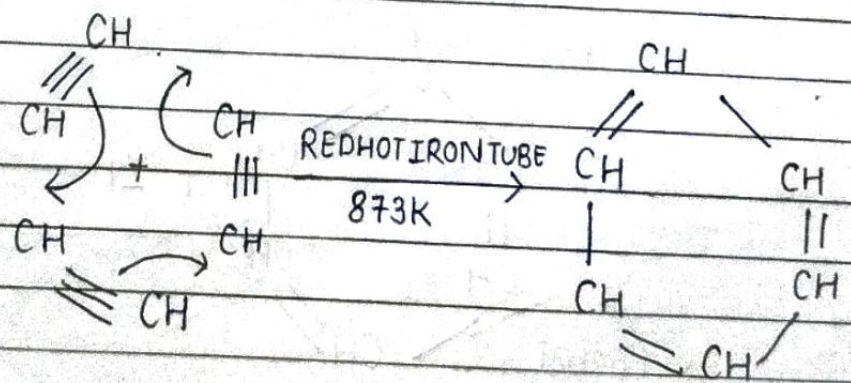 CH CH
CH CH REDHOTIRONTUBE CH CH
+ 873K
CH CH CH CH
CH CH